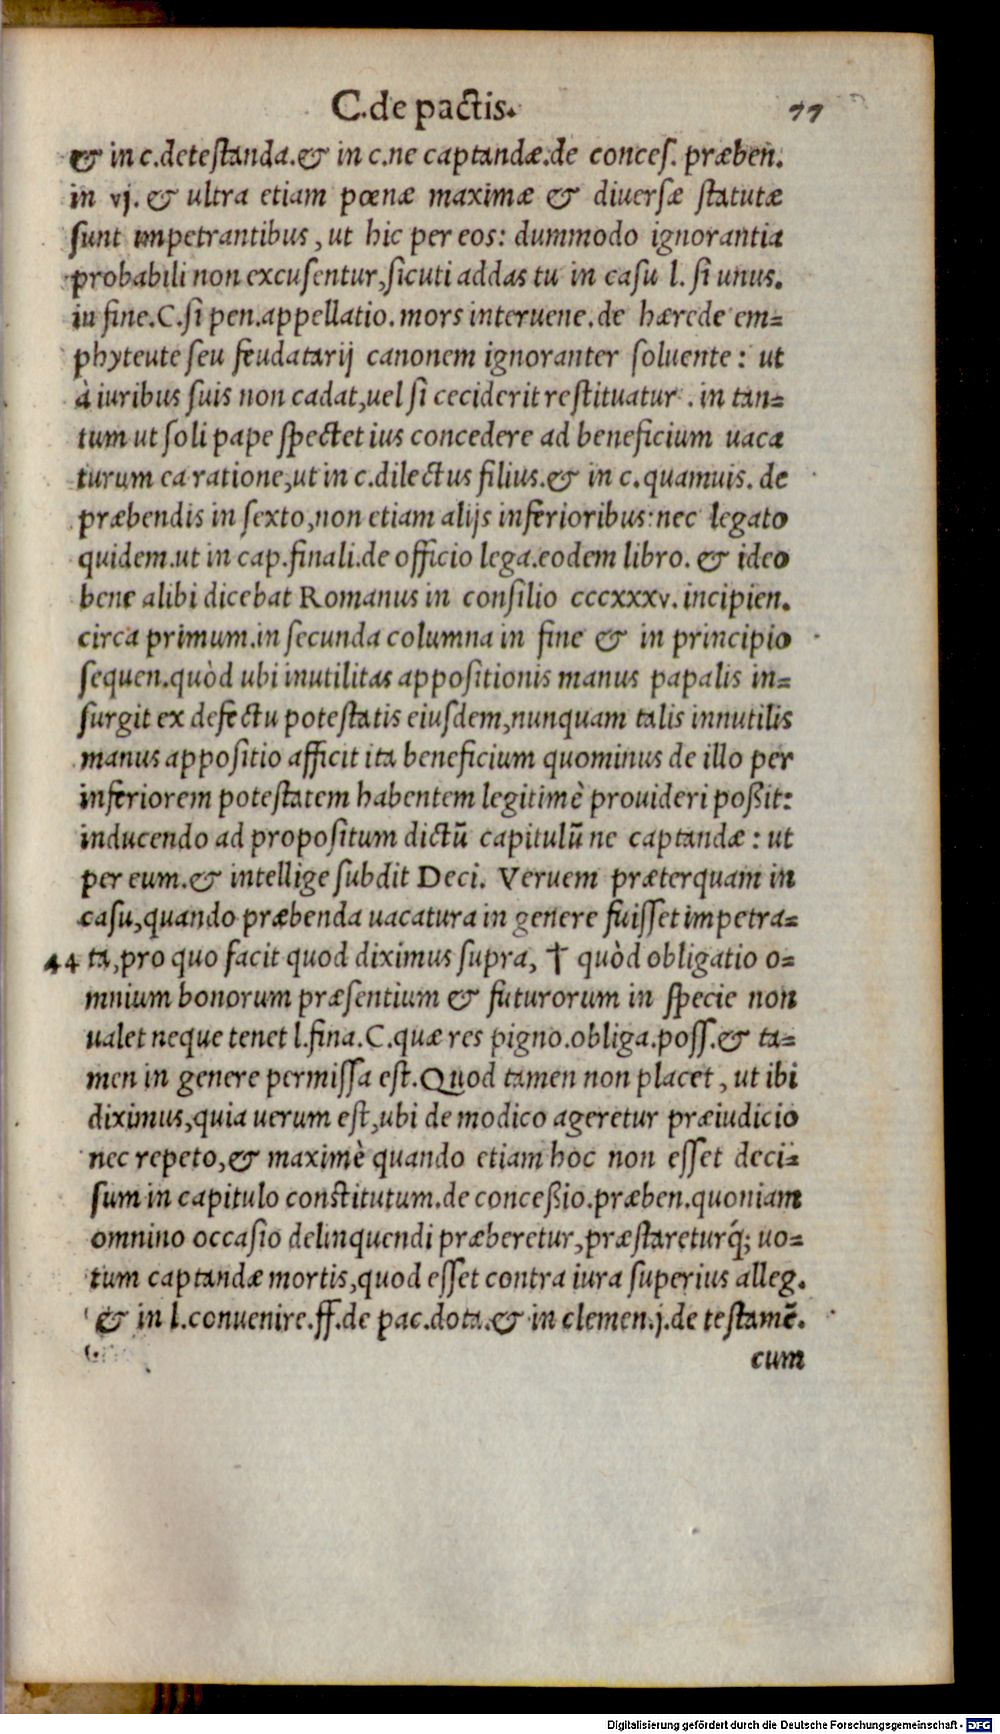 C. de pactis. 77
& in c. detestanda. & in c. ne captandæ. de conces. præben.
in vj. & ultra etiam pœnæ maximæ & diuersæ statutæ
sunt impetrantibus, ut hic per eos: dummodo ignorantia
probabili non excusentur, sicuti addas tu in casu l. si unus.
in fine. C. si pen. appellatio. mors interuene. de hærede em=
phyteute seu feudatarij canonem ignoranter soluente: ut
à iuribus suis non cadat, uel si ceciderit restituatur. in tan=
tum ut soli pape spectet ius concedere ad beneficium uaca
turum ea ratione, ut in c. dilectus filius. & in c. quamuis. de
præbendis in sexto, non etiam alijs inferioribus: nec legato
quidem. ut in cap. finali. de officio lega. eodem libro. & ideo
bene alibi dicebat Romanus in consilio cccxxxv. incipien.
circa primum. in secunda columna in fine & in principio
sequen. quòd ubi inutilitas appositionis manus papalis in=
surgit ex defectu potestatis eiusdem, nunquam talis innutilis
manus appositio afficit ita beneficium quominus de illo per
inferiorem potestatem habentem legitimè prouideri poßit:
inducendo ad propositum dictũ capitulũ ne captandæ: ut
per eum. & intellige subdit Deci. Veruem præterquam in
casu, quando præbenda uacatura in genere fuisset impetra=
44 ta, pro quo facit quod diximus supra, † quòd obligatio o=
mnium bonorum præsentium & futurorum in specie non
ualet neque tenet l. fina. C. quæ res pigno. obliga. poss. & ta=
men in genere permissa est. Quod tamen non placet, ut ibi
diximus, quia uerum est, ubi de modico ageretur præiudicio
nec repeto, & maximè quando etiam hoc non esset deci=
sum in capitulo constitutum. de conceßio. præben. quoniam
omnino occasio delinquendi præberetur, præstareturq́; uo=
tum captandæ mortis, quod esset contra iura superius alleg.
& in l. conuenire. ff. de pac. dota. & in clemen. j. de testamẽ.
cum
Digitalisierung gefördert durch die Deutsche Forschungsgemeinschaft - DFG